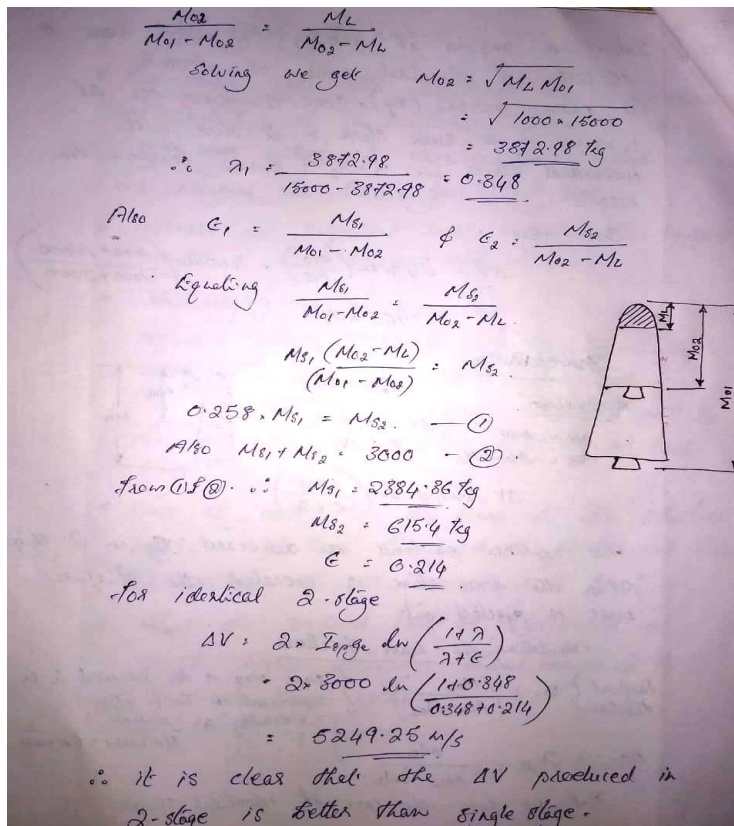 M02 / (M01 - M02) = ML / (M02 - ML)
Solving we get M02 = √(ML M01)
= √(1000 × 15000)
= 3872.98 kg
∴ λ1 = 3872.98 / (15000 - 3872.98) = 0.348
Also ϵ1 = MS1 / (M01 - M02) & ϵ2 = MS2 / (M02 - ML)
Equating MS1 / (M01 - M02) = MS2 / (M02 - ML)
MS1 (M02 - ML) / (M01 - M02) = MS2
0.258 × MS1 = MS2. — ①
Also MS1 + MS2 = 3000 — ②
from ① & ② ∴ MS1 = 2384.86 kg
MS2 = 615.4 kg
ϵ = 0.214
for identical 2-stage
ΔV = 2 × Ispge ln ((1+λ) / (λ+ϵ))
= 2 × 3000 ln ((1+0.348) / (0.348+0.214))
= 5249.25 m/s
∴ it is clear that the ΔV produced in
2-stage is better than single stage.
ML
M02
M01